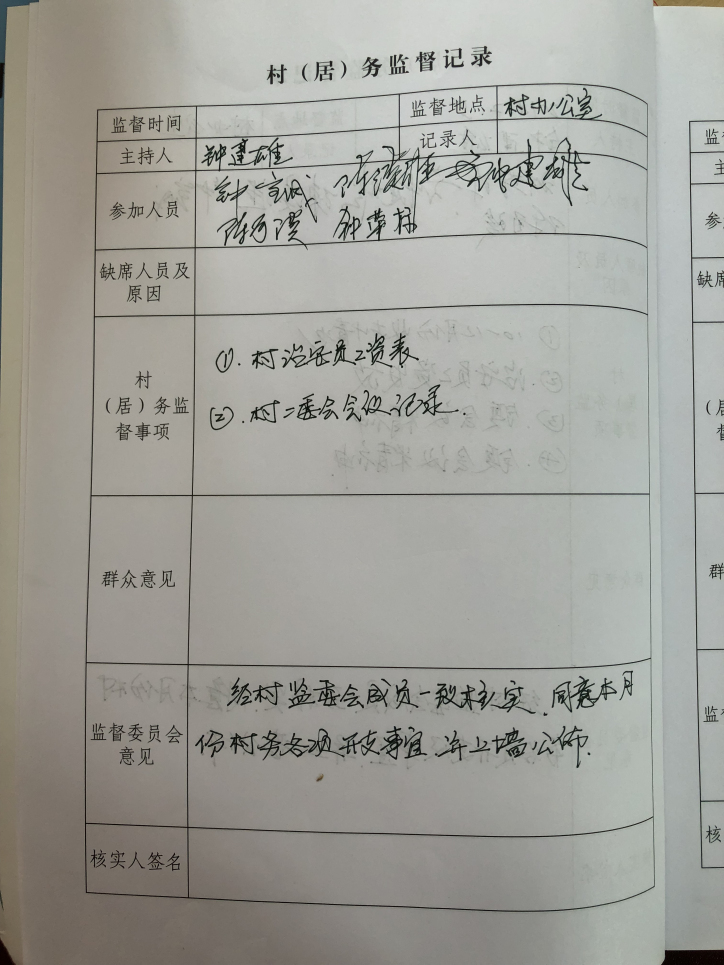 村（居）务监督记录
监督时间 监督地点 村办公室
主持人 钟建雄 记录人
参加人员 钟 钟建雄
陈 钟荣标
缺席人员及
原因
村
（居）务监
督事项
①.村治安员工资表
②.村二委会会议记录.
群众意见
监督委员会
意见
经村监委会成员一致核实.同意本月
份村务各项开支事宜.并上墙公佈.
核实人签名
监
主
参加
缺席
村
（居
督
群
监督
核实